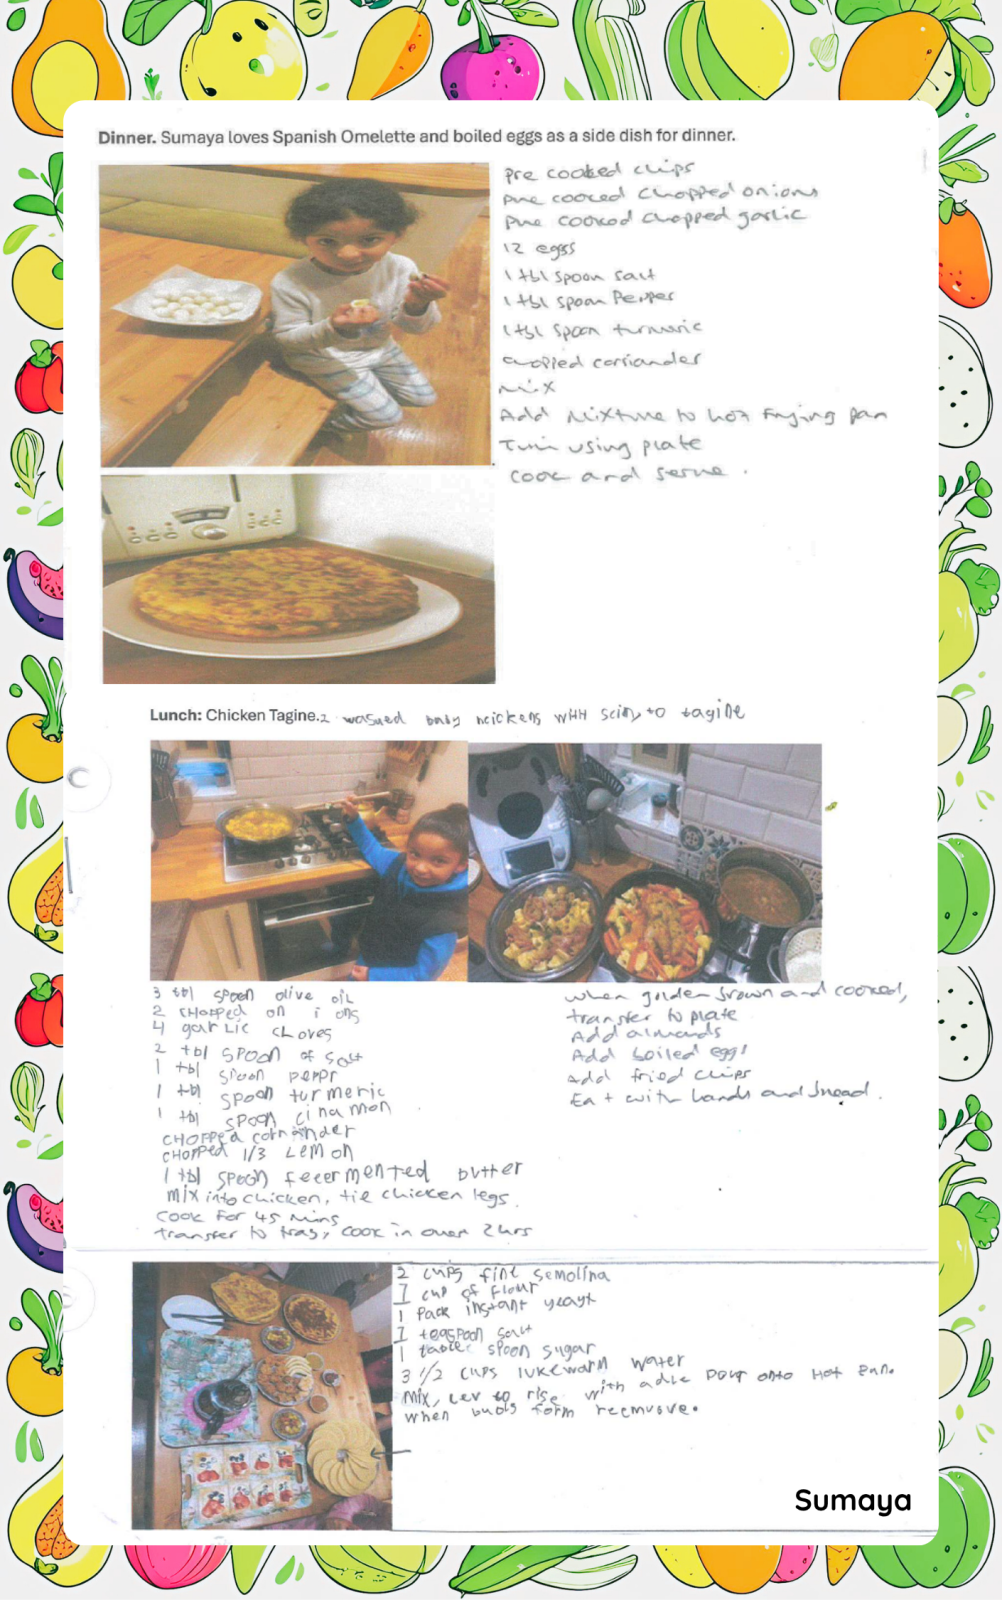 Dinner. Sumaya loves Spanish Omelette and boiled eggs as a side dish for dinner.
Pre cooked chips
Pre cooked chopped onions
Pre cooked chopped garlic
12 eggs
1 tbl spoon salt
1 tbl spoon Pepper
1 tbl spoon turmeric
chopped corriander
mix
Add Mixture to hot Frying pan
Turn using plate
cook and serve.
Lunch: Chicken Tagine. 2 washed baby hcickens with scin, to tagine
3 tbl spoon olive oil
2 CHopped onions
4 garlic cloves
2 tbl spoon of Salt
1 tbl spoon pepr
1 tbl spoon turmeric
1 tbl spoon cinamon
CHOPPed corriander
cHoPPed 1/3 LEMON
1 tbl spoon feeermented butter
mix into chicken, tie chicken legs.
Cook For 45 mins
transfer to tray, cook in oven 2hrs
when golden brown and cooked,
transfer to plate
Add almonds
Add boiled eggs
Add fried chips
Eat with hands and bread.
2 cups fine semolina
1 cup of Flour
1 Pack instant yeayt
1 teaspoon salt
1 table spoon sugar
3 1/2 cups lukewarm water
Mix, Lev to rise. with adle Pour onto Hot Pan.
when bubls form reemuove.
Sumaya